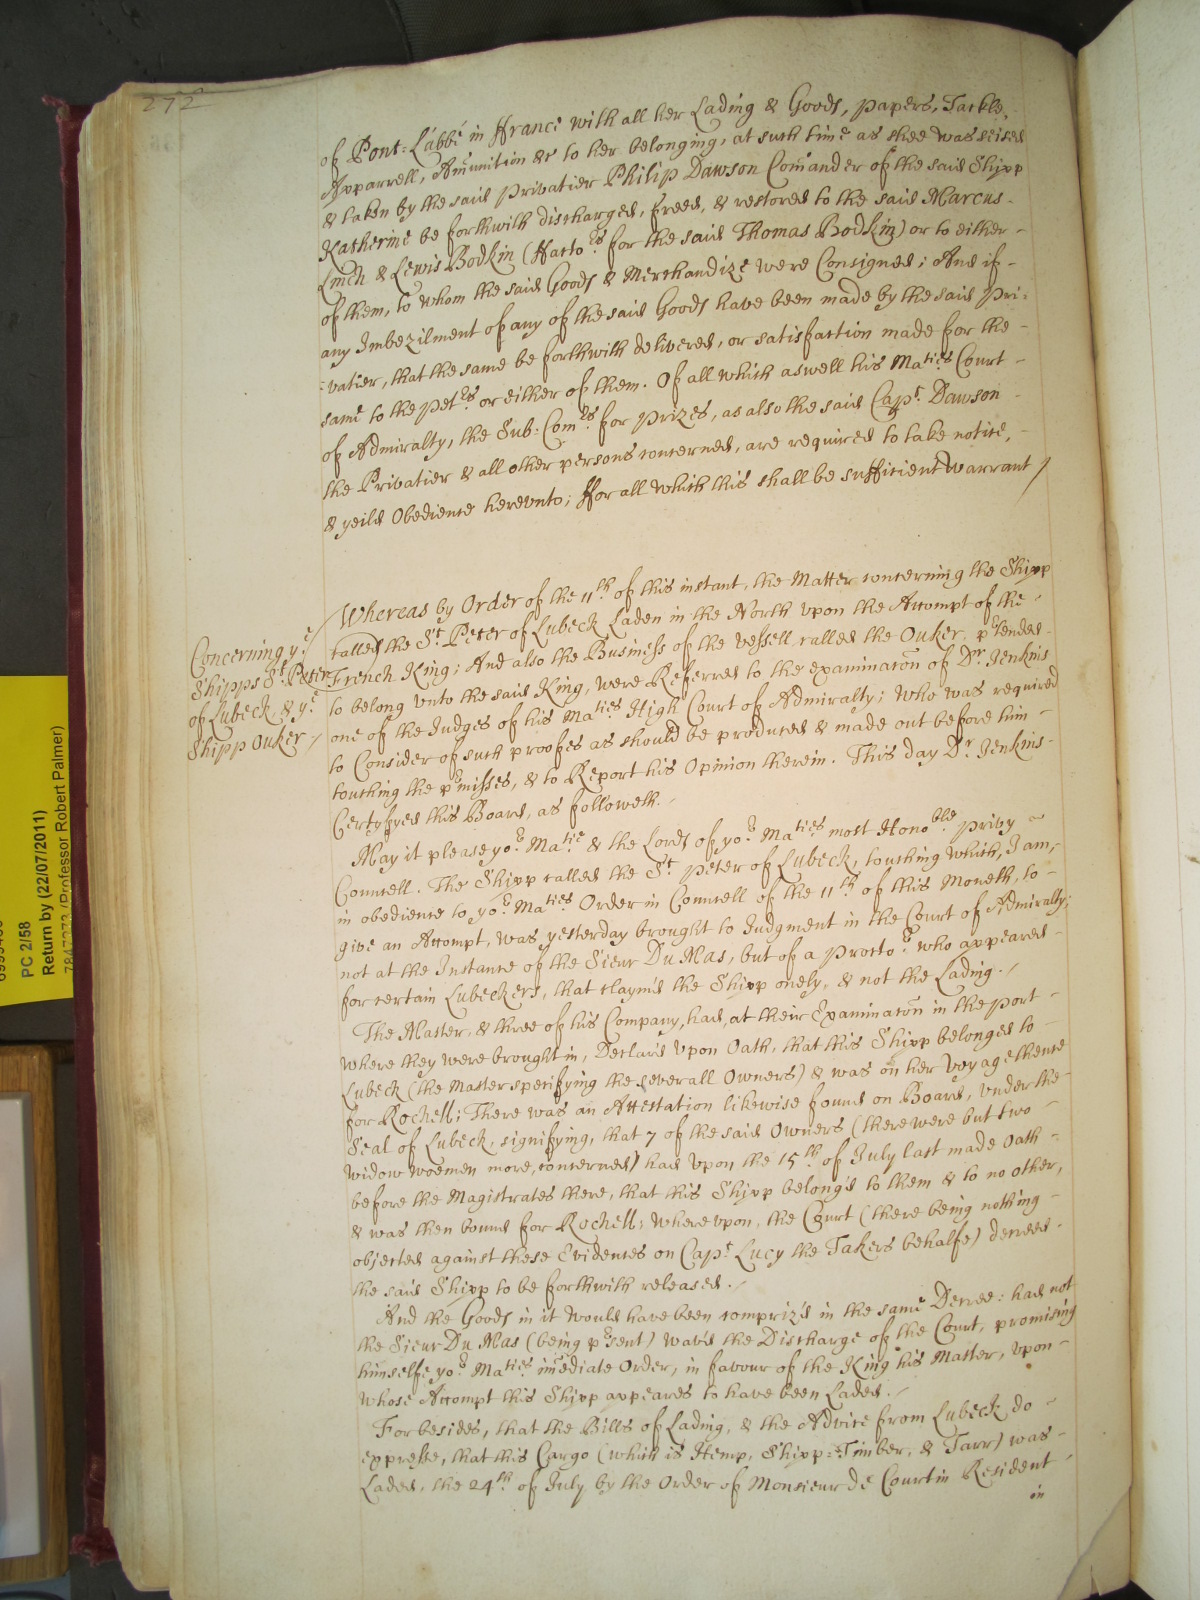 272
of Pont-Labbé in France with all her Lading & Goods, papers, Tackle,
Apparrell, Amunition &c to her belonging, at such time as shee was seised
& taken by the said Privatier Philip Dawson Comander of the said Shipp
Katherine be forthwith discharged, freed, & restored to the said Marcus
Linch & Lewis Bodkin (Factors for the said Thomas Bodkin) or to either
of them, to whom the said Goods & Merchandize were Consigned; And if
any Imbezilment of any of the said Goods have been made by the said Pri-
-vatier, that the same be forthwith delivered, or satisfaction made for the
same to the petrs or either of them. Of all which aswell his Maties Court
of Admiralty, the Sub-Comrs for prizes, as also the said Capt. Dawson
the Privatier & all other persons concerned, are required to take notice,
& yeild Obedience herevnto; For all which this shall be sufficient Warrant/
Concerning ye
Shipps St Peter
of Lubeck & ye
Shipp Ouker
Whereas by Order of the 11th of this instant, the Matter concerning the Shipp
called the St Peter of Lubeck Laden in the North vpon the Accompt of the
French King; And also the Business of the vessell called the Ouker, prtended
to belong vnto the said King, were Referred to the examinacon of Dr. Jenkins
one of the Judges of his Maties High Court of Admiralty; Who was required
to Consider of such proofes as should be produced & made out before him
touching the prmisses, & to Report his Opinion therein. This day Dr. Jenkins
Certifyed this Board, as followeth.
May it please yor Matie & the Lords of yor Maties most Honoble privy
Councell. The Shipp called the St Peter of Lubeck, touching which, I am,
in obedience to yor Maties Order in Councell of the 11th of this Moneth, to
give an Accompt, was yesterday brought to Judgment in the Court of Admiralty;
not at the Instance of the Sieur Du Mas, but of a Proctor who appeared
for certain Lubeckers, that claym'd the Shipp onely, & not the Lading.
The Master, & three of his Company, had, at their Examinacon in the port
where they were brought in, Declar'd vpon Oath, that this Shipp belonged to
Lubeck (the Master specifying the severall Owners) & was on her Voyage thence
for Rochell; There was an Attestation likewise found on Board, vnder the
Seal of Lubeck, signifying, that 7 of the said Owners (there were but two
widow woemen more, concerned) had vpon the 15th of July last made Oath
before the Magistrates there, that this Shipp belong'd to them & to no other,
& was then bound for Rochell; Where vpon, the Court (there being nothing
objected against these Evidences on Capt. Lucy the Takers behalfe) decreed
the said Shipp to be forthwith released.
And the Goods in it would have been compriz'd in the same Decree: had not
the Sieur Du Mas (being prsent) wav'd the Discharge of the Court, promising
himselfe yor Maties imediate Order, in favour of the King his Master, vpon
whose Accompt this Shipp appeares to have been Laded.
For besides, that the Bills of Lading, & the Advice from Lubeck do
expresse, that this Cargo (which is Hemp, Shipp-Timber, & Tarr) was
Laded, the 24th of July by the Order of Monsieur de Courtin Resident
in
PC 2/58
Return by (22/07/2011)
(Professor Robert Palmer)